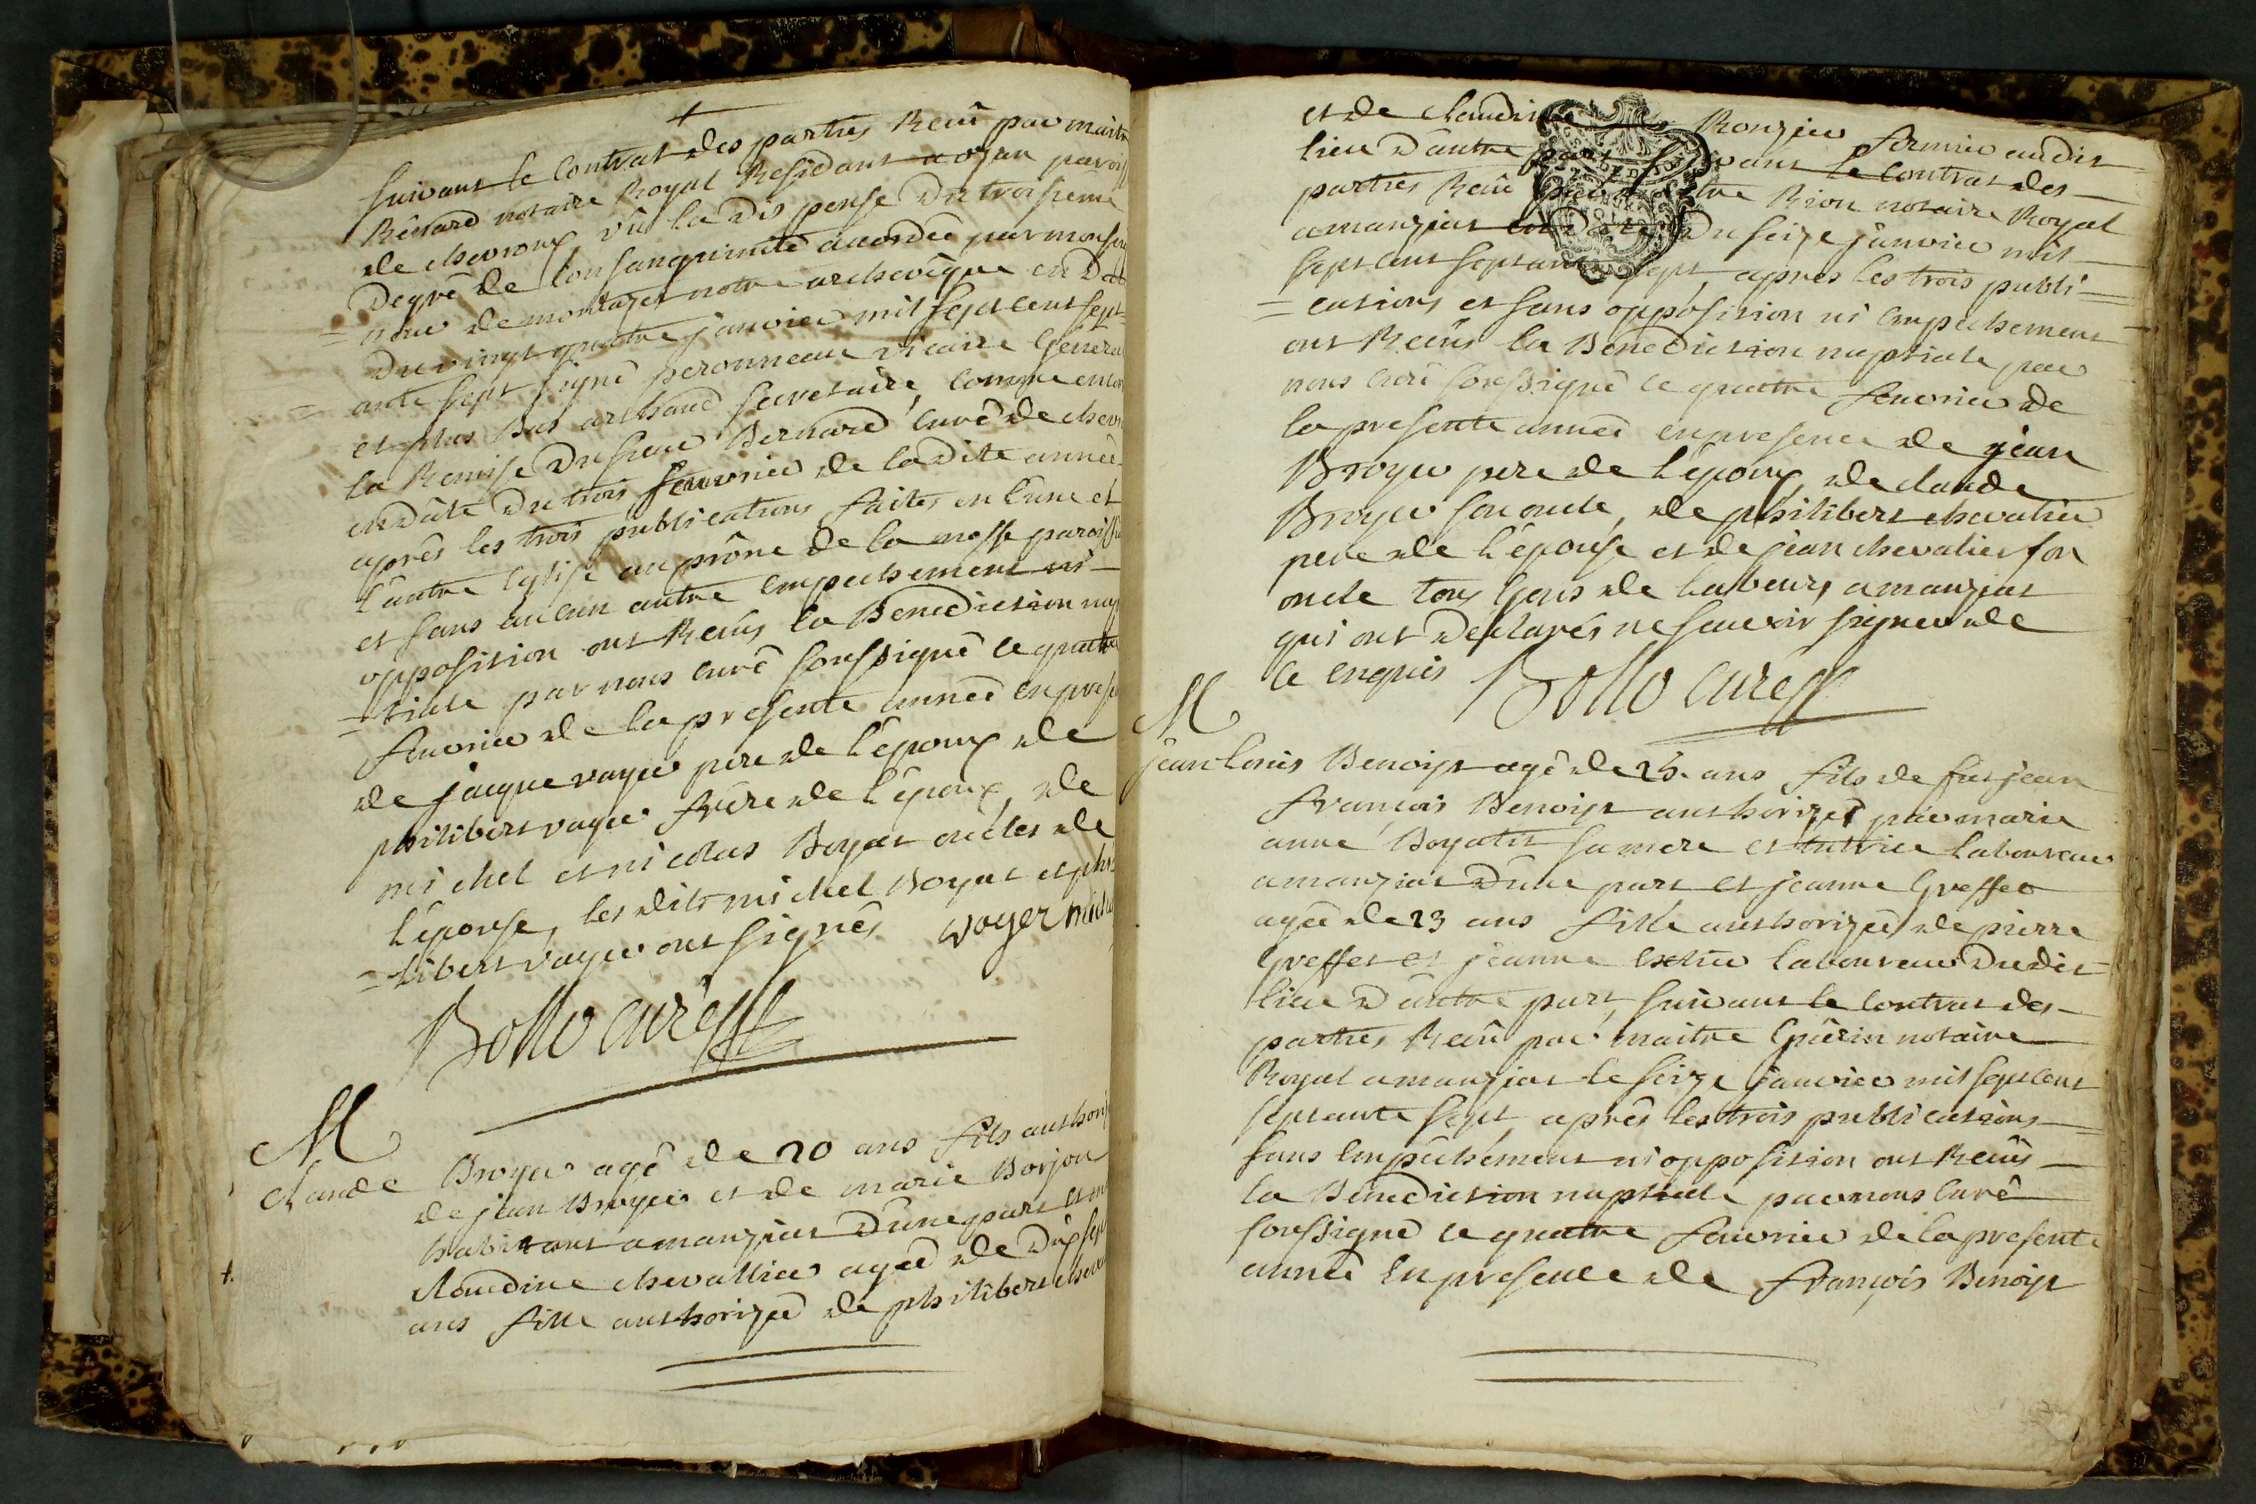 suivant le Contrat des parties Recû par maitre
Rénard notaire Royal Residant a ozan parois
de chevroux, vû la dispense du troisieme
degré de Consanguinité accordée par monsei
= neur de montazet notre archevêque en date
du vingt quatre janvier mil sept cent sept
= ante sept signé peronneau vicaire general
et plus Bas archaud secretaire, comme encor
la Remise du sieur Bernard curé de chevr
en date du trois feuvrier de ladite année
aprês les trois publications faites en l'une et
l'autre Eglise au prône de la messe paroissi
et sans aucun autre empechement ni
opposition ont Recûs la Benediction nup
= tiale par nous curé soussigné le quatre
feuvrier de la presente année en prese
de jacque voyer pere de l'époux de
philibert voyer frère de l'époux, de
michel et nicolas Boyat oncles de
l'épouse, les dits michel Boyat et phi
= libert voyer ont signés voyer
Bollo curé
M
Claude Broyer agé de 20 ans fils authori
de jean Broyer et de marie Borjon
habitant a manziat d'une part et
claudine chevallier agée de dix sept
ans fille authorizée de philibert cheva
et de Claudine Ronzier fermier audit
lieu d'autre part suivant le Contrat des
parties Recû par maitre Rion notaire Royal
a manziat en date du seize janvier mil
sept cent septante sept, apres les trois publi
= cations et sans opposition ni empechement
ont Recûs la Benediction nuptiale par
nous curé soussigné le quatre feuvrier de
la presente année en presence de jean
Broyer pere de l'époux de claude
Broyer son oncle, de philibert chevalier
pere de l'épouse et de jean chevalier son
oncle tous gens de labeurs a manziat
qui ont declarés ne scavoir signer de
ce enquis Bollo curé
M
jean louis Benoist agé de 25 ans fils de fut jean
françois Benoist authorizé par marie
anne Boyatit sa mere et tutrice laboureur
a manziat d'une part et jeanne Greffet
agée de 23 ans fille authorizée de pierre
Greffet et jeanne laboureur dudit
lieu d'autre part, suivant le Contrat des
parties Recû par maitre Guérin notaire
Royal a manziat le seize janvier mil sept cent
septante sept, aprês les trois publications
sans Empêchement ni opposition ont Recûs
la Benediction nuptiale par nous curé
soussigné le quatre feuvrier de la presente
année En presence de françois Benoist